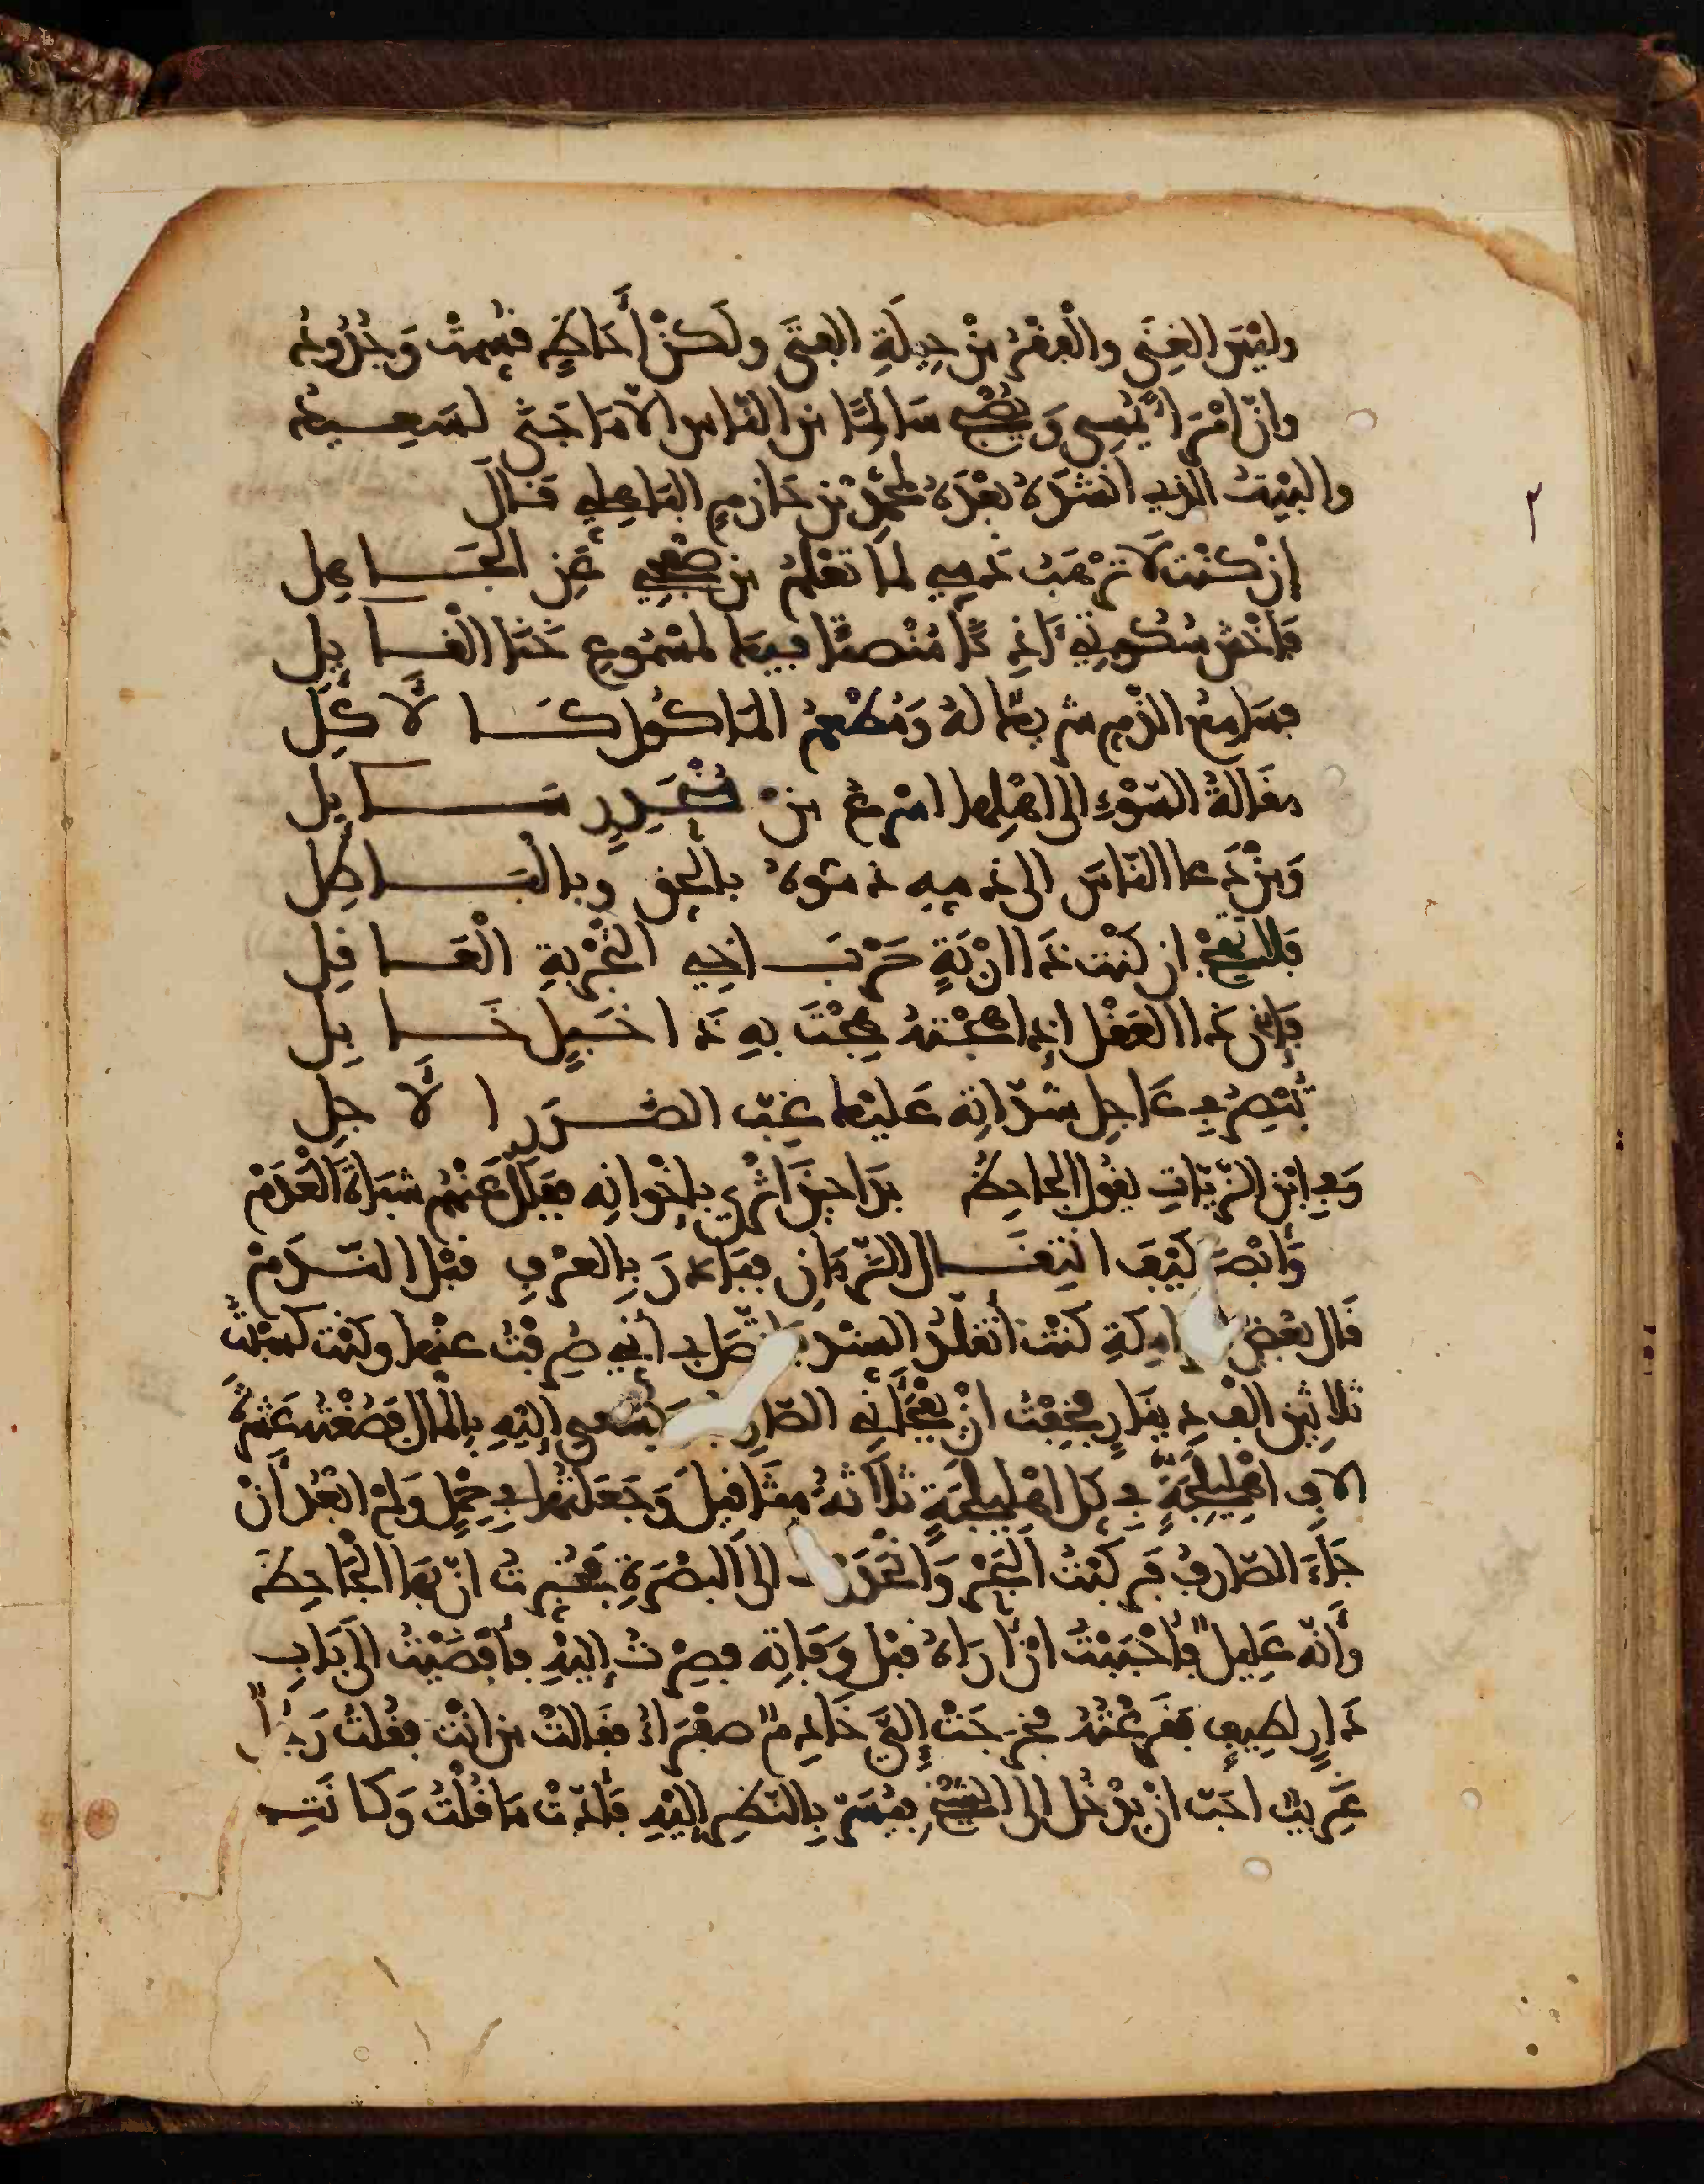 وليْسَ الغِنَى والْفَقْرُ مِنْ حِيلَةِ الفتَى ولَكنْ أَحَاظٍ قسِمتْ وَجُدُودُ
وانّ امْرَأً يُمْسِى وَيُصْبِحُ سَالِمًا مِن النّاسِ الاّ مَا جَنَى لسَعِيدُ
والبيْتُ الّذي انشدَهُ بعْدَهُ لمحمّدِ بْنِ حَازمٍ البَاهِلِي قَالَ
إِنْ كنْتَ لاَ تَرْهَبُ ذَمِّي لمَا تعْلمُ مِن صَفْحِي عَنِ الجَاهِل
فَاخْشَ سُكُوتِي آذِنًا مُنْصِتًا فِيهَا لمسْمُوعِ خَنَا الْقَايِل
فسَامِعُ الذّمِ شرِيكٌ لهُ وَمُطْعِمُ المَاكُولِ كَالآكِل
مقَالةُ السّوْءِ الى اهْلِهَا اسْرعُ مِنْ مُنْحَدِرٍ سَايِل
وَمَنْ دَعا النّاسَ الى ذمِهِ ذمّوهُ بالحَق وبِالْبَاطِل
فَلا تَهِجْ ان كنْتَ ذَا ارْبَةٍ حَرْبَ اخِي التّجْرِبةِ الْعَاقِل
فَإنّ ذَا العَقْل اذا هجْتهُ هِجْتَ بهِ ذَا خَبَلٍ خَابِل
تُبْصِرُ في عَاجِل شدّاتِهِ عَليْكَ غِبّ الضّرَرِ الآجِل
وَفي ابْنِ الزّيّاتِ يقُول الجاحِظُ بدَا حِينَ اثْرَى بإِخْوَانِه ففَلّلَ عَنْهُمْ شبَاةَ الْعَدَمْ
وَابْصَرَ كيْفَ انتِقَالُ الزّمَانِ فبَادَرَ بِالعُرْفِ قبْل النّدَمْ
قَال بعْضُ البرامِكةِ كنْتُ أتقلّدُ السنْد فاتّصَل بي أنّي صُرِفْتُ عنْها وكنْت كسَبْتُ
ثلاثِينَ الفَ دِينَارٍ فخِفْتُ انْ يفْجَأَنِي الصّارِفُ ويُسْعى إليْهِ بِالْمَالِ فَصُغْتُه عَشرَةَ
الافِ اهْلِيلَجَةٍ في كُل اهْلِيلَجَةٍ ثلاَثةُ مثَاقِيلَ وَجَعلْتُهَا فِي حِمْلٍ وَلمْ ابْعُدْ أَنْ
جَاءَ الصّارِفُ فَركبْتُ البَحْرَ وَانْحَدَرْتُ الى البَصْرَةِ فخُبّرتُ انّ بهَا الْجَاحِظَ
وأنّهُ عَلِيلٌ فأحْبَبْتُ انْ أرَاهُ قبْل وَفَاتِه فصِرْتُ إليْهِ فأفْضَيْتُ الى بَابِ
دَارٍ لَطِيفٍ فقَرعْتُهُ فخرَجَتْ إليّ خَادِمٌ صفْرَاءُ فقَالتْ مَن انْتَ فقُلتُ رَجُلٌ
غَرِيبٌ احَبّ انْ يدْخُلَ الى الشيْخِ فيُسَرّ بِالنّظرِ إليْهِ فأدّتْ مَا قُلْتُ وَكَانَتِ
٢